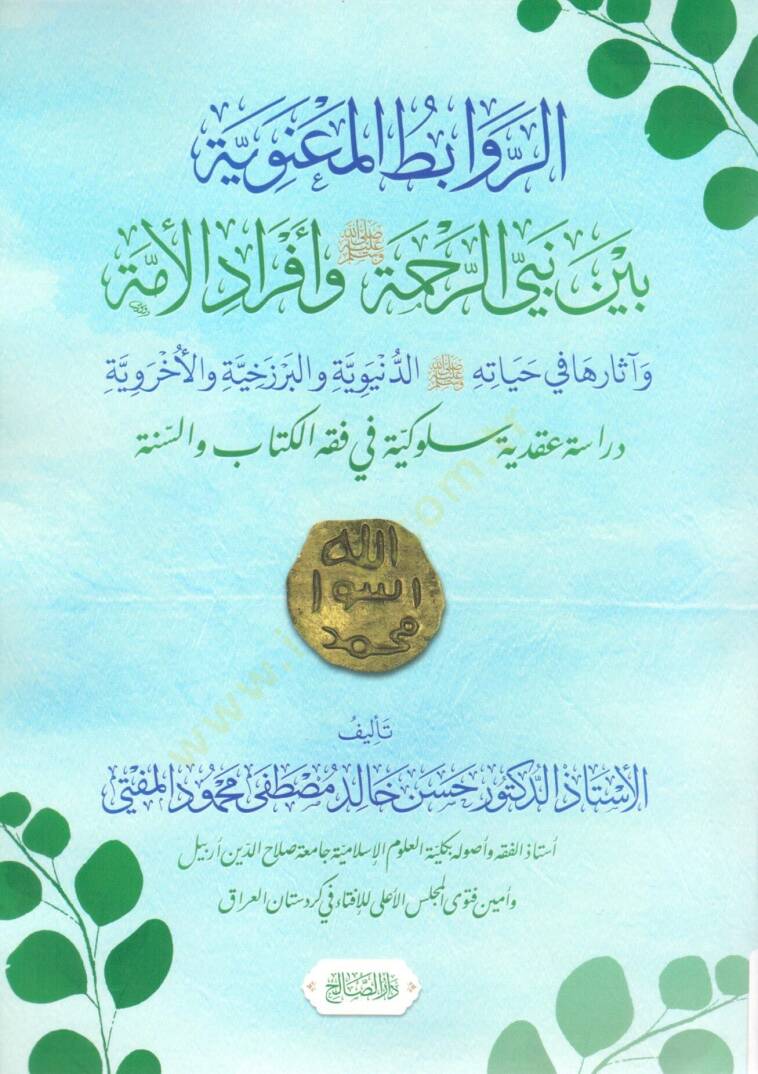 الرَّوَابِطُ المَعْنَوِيَّة
بَيْنَ نَبِيِّ الرَّحْمَة ﷺ وأَفْرَادِ الأمَّة
وَآثارهَا في حَيَاتِهِ ﷺ الدُّنْيَوِيَّة والبَرْزَخِيَّة والأُخْرَوِيَّة
دراسة عقدية سلوكيّة في فقه الكتاب والسّنة
الله
رسول
محمد
تَأليفُ
الأسْتاذ الدّكتور حَسَن خَالِد مُصْطَفى مَحمُود المُفتي
أستاذ الفقه وأصوله بكليّة العلوم الإسلاميّة جامعة صلاح الدّين أربيل
وأمين فتوى المجلس الأعلى للإفتاء في كردستان العراق
دَارُ الصَّالِح